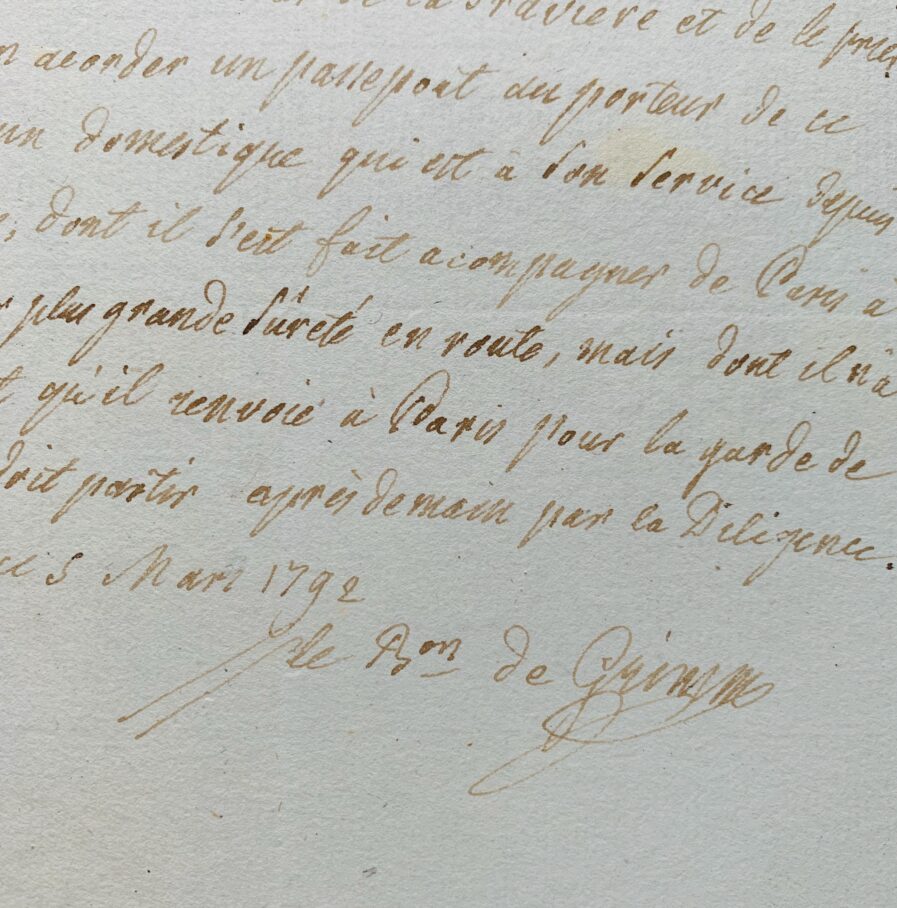 de la Gravière et de le prier
acorder un passeport au porteur de ce
un domestique qui est à son service depuis
dont il s'est fait acompagner de Paris à
plus grande sûreté en route, mais dont il n'a
qu'il renvoié à Paris pour la garde de
doit partir après demain par la Diligence.
ce 5 Mars 1792
le Bon de Grimm